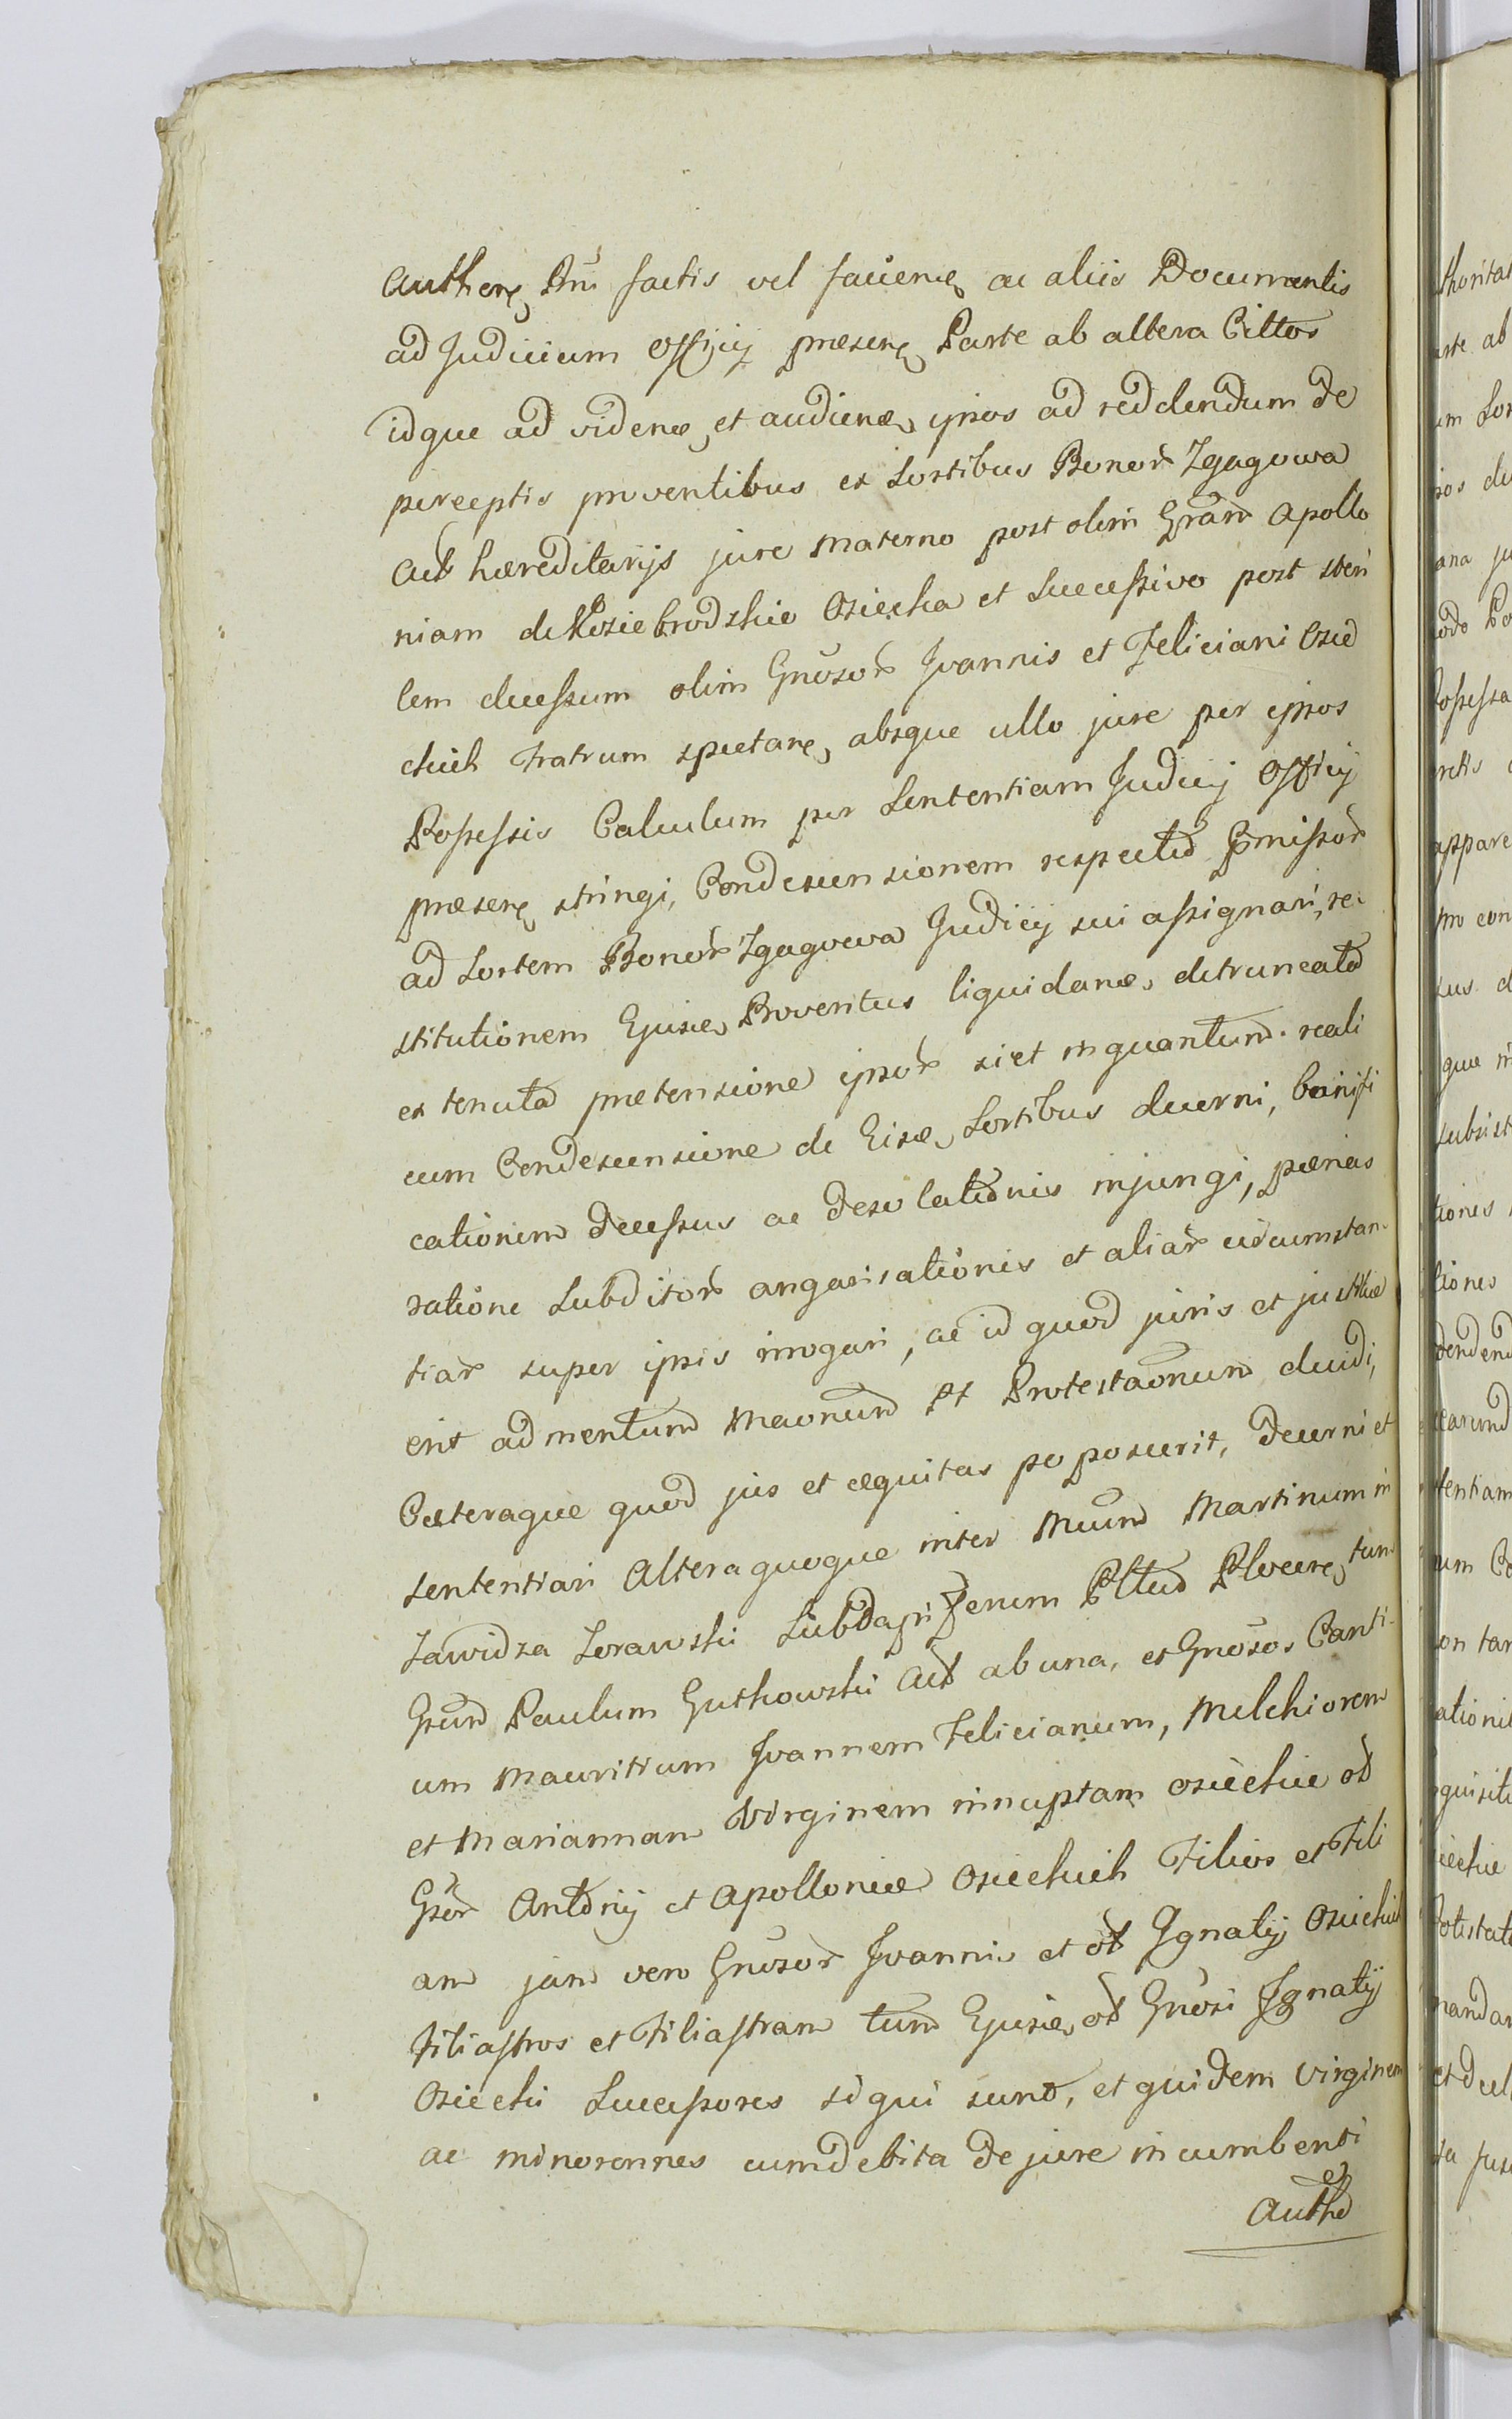 Authen, Am̃ factis vel faciend, ac aliis Documentis
ad Judicium Officij præsens, Parte ab altera Cittos
idque ad videnđ, et audienđ, ipsos ad reddendum de
perceptis proventibus ex Sortibus Bonor Zgagowa
Act hæreditarijs jure materno post olim Gnãm Apollo
niam de Kosiebrodzkie Osiecka et Successivo post steri
lem decessum olim Gnõsor Joannis et Feliciani Osie
ckich Fratrum spectanę, absque ullo jure per ipsos
Possessis Calculum per Sententiam Judicij Officij
præsenę stringi, Condescensionem respectu Præmissor
ad Sortem Bonor Zgagowa Judicij sui assignari, re-
stitutionem Ejusđ, Proventus liquidanđ, detruncata
ex tenuta prætensione ipsor si et inquantum reali
cum Condescensione de Eisđ, Sortibus decerni, bonifi
cationem Decessus ac desolationis injungi, pænas
ratione Subditor angarisationis et aliar circumstan-
tiar super ipsis irrogari, ac id quod juris et justitiæ
erit ad mentum Maonum et Protestaonum decidi,
Cæteraque quod jus et æquitas poposcerit, Decerni et
sententiari Altera quoque inter Mcum Martinum in
Zawidza Zorawski Subdapiferum Pltus Plocen, tum
Gsum Paulum Gutkowski Act ab una, et Gnõsos Canti-
um Mauritium Joannem Felicianum, Melchiorem
et Mariannam Virginem innuptam Osieckie ol
Gsor Antonij et Apolloniæ Osieckich Filios et Fili
am jam vero Gnõsor Joannis et ol Ignatij Osieckich
Filiastros et Filiastram tum Ejusđ, ol Gnõsi Ignatij
Osiecki Successores si qui sunt, et quidem Virginem
ac minorennes cum debita de jure incumbenti
et
Autho